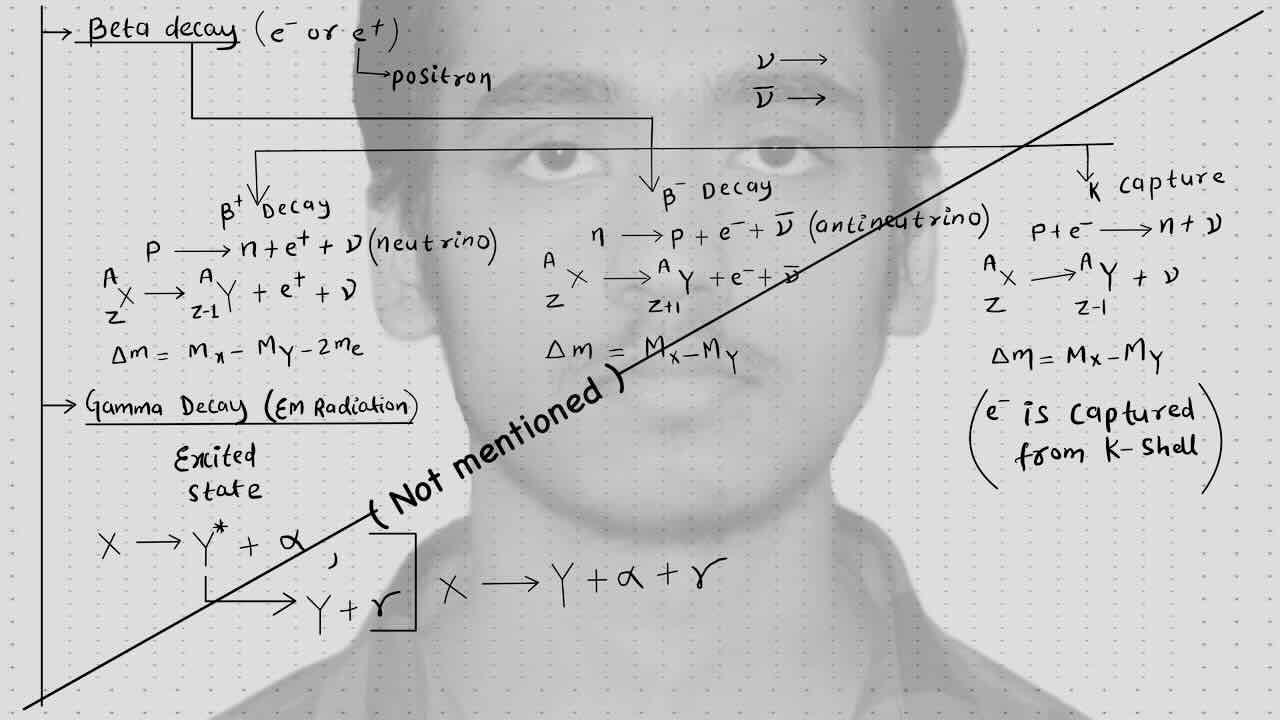 → Beta decay (e⁻ or e⁺)
→ positron
ν →
ν̄ →
β⁺ Decay
P → n + e⁺ + ν (neutrino)
ᴬ_Z X → ᴬ_Z-1 Y + e⁺ + ν
Δm = Mₓ - M_Y - 2mₑ
β⁻ Decay
n → p + e⁻ + ν̄ (antineutrino)
ᴬ_Z X → ᴬ_Z+1 Y + e⁻ + ν̄
Δm = Mₓ - M_Y
K capture
p + e⁻ → n + ν
ᴬ_Z X → ᴬ_Z-1 Y + ν
Δm = Mₓ - M_Y
(e⁻ is captured
from K-Shell)
→ Gamma Decay (EM Radiation)
Excited
state
X → Y* + α,
→ Y + r]
X → Y + α + r
(Not mentioned)